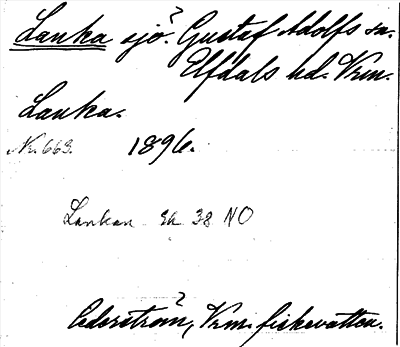 Lanka sjö? Gustaf Adolfs sn.
Elfdals hd. Vrm.
Lanka.
Nr. 663. 1896.
Lankan Ek 38 NO
Cederström, Vrm. fiskevatten.